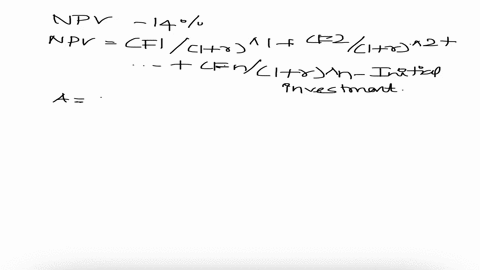 NPV - 14%
NPV = CF1/(1+r)^1 + CF2/(1+r)^2 +
... + CFn/(1+r)^n - Initial
investment.
A =